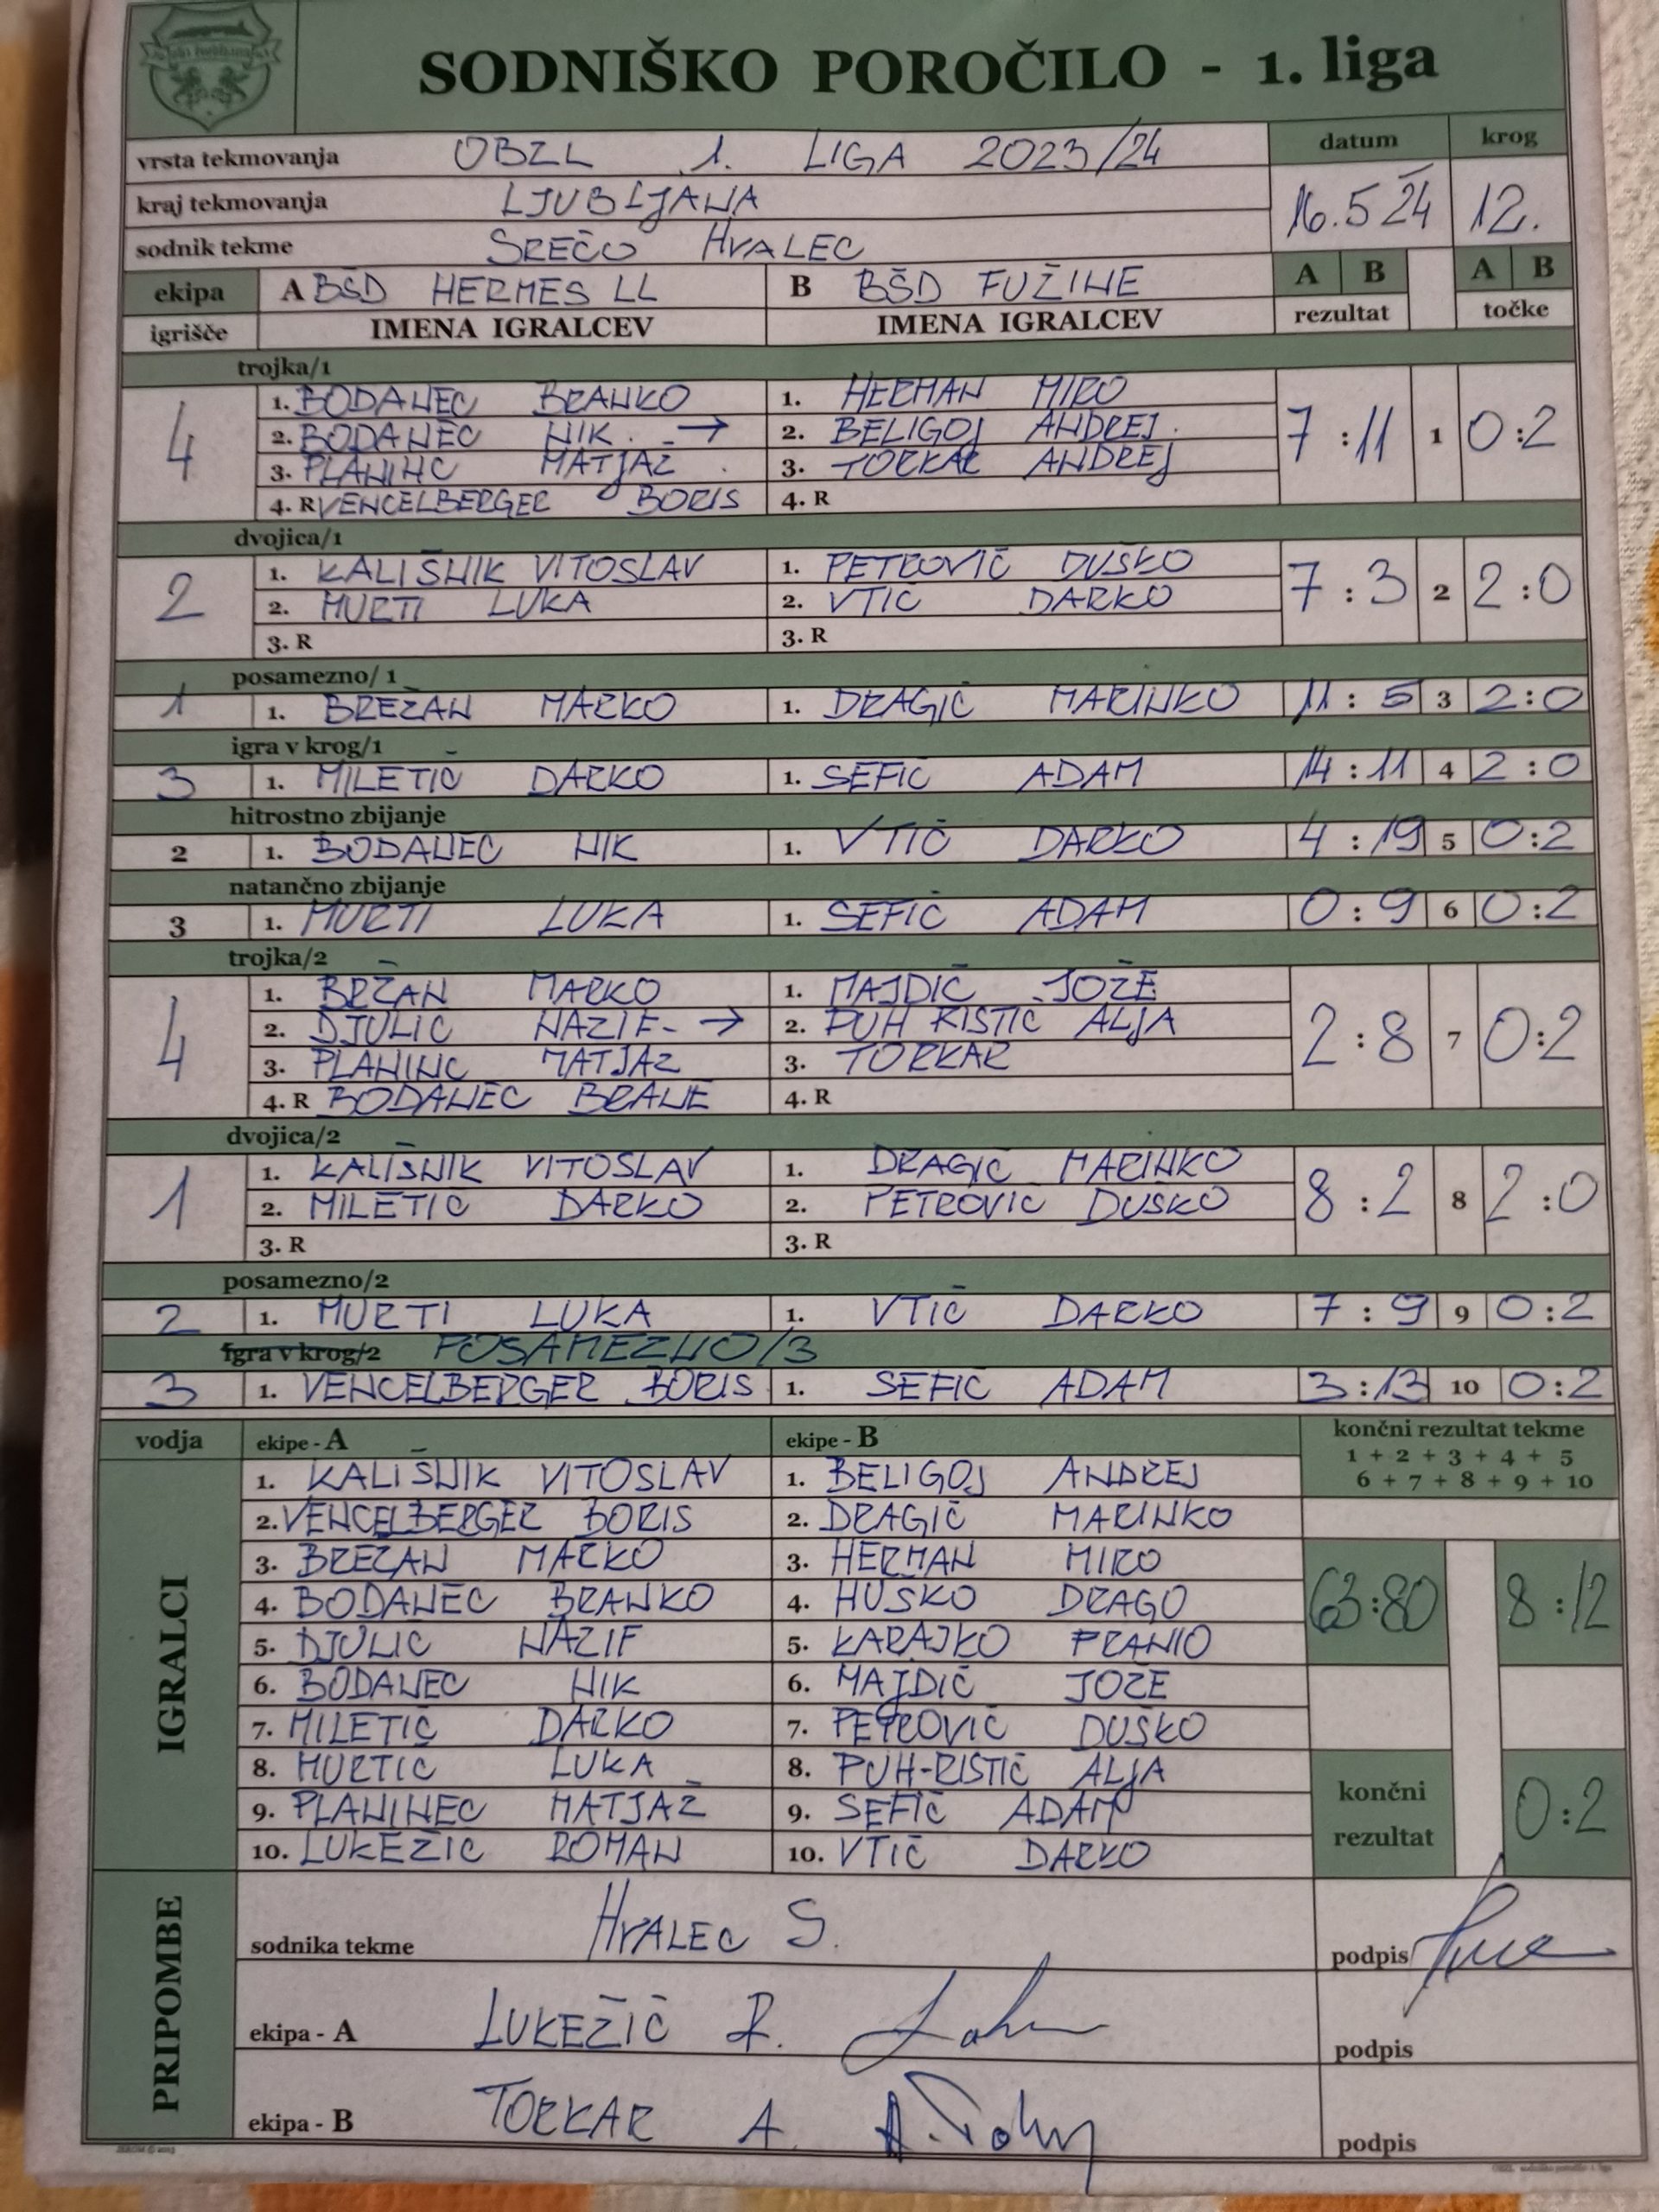 SODNIŠKO POROČILO - 1. liga
vrsta tekmovanja OBZL 1. LIGA 2023/24 datum krog
kraj tekmovanja LJUBLJANA 16.5 24 12.
sodnik tekme SREČO HVALEC
ekipa A BŠD HERMES LL B BŠD FUŽINE A B A B
igrišče IMENA IGRALCEV IMENA IGRALCEV rezultat točke
trojka/1
4 7:11 1 0:2
1. BODANEC BRANKO 1. HERMAN MIRO
2. BODANEC NIK. → 2. BELIGOJ ANDREJ.
3. PLANINC MATJAZ 3. TORKAR ANDREJ
4. R VENCELBERGER BORIS 4. R
dvojica/1
2 7:3 2 2:0
1. KALIŠNIK VITOSLAV 1. PETROVIČ DUŠKO
2. MURTI LUKA 2. VTIČ DARKO
3. R 3. R
posamezno/ 1
1 1. BREŽAN MARKO 1. DRAGIČ MARINKO 11:5 3 2:0
igra v krog/1
3 1. MILETIČ DARKO 1. SEFIČ ADAM 14:11 4 2:0
hitrostno zbijanje
2 1. BODANEC NIK 1. VTIČ DARKO 4:19 5 0:2
natančno zbijanje
3 1. MURTI LUKA 1. SEFIČ ADAM 0:9 6 0:2
trojka/2
4 2:8 7 0:2
1. BRŽAN MARKO 1. MAJDIČ JOŽE
2. DJULIC NAZIF- → 2. PUH RISTIČ ALJA
3. PLANINC MATJAZ 3. TORKAR
4. R BODANEC BRANE 4. R
dvojica/2
1 8:2 8 2:0
1. KALIŠNIK VITOSLAV 1. DRAGIČ MARINKO
2. MILETIC DARKO 2. PETROVIC DUŠKO
3. R 3. R
posamezno/2
2 1. MURTI LUKA 1. VTIČ DARKO 7:9 9 0:2
igra v krog/2 POSAMEZNO/3
3 1. VENCELBERGER BORIS 1. SEFIČ ADAM 3:13 10 0:2
vodja ekipe - A ekipe - B končni rezultat tekme
1 + 2 + 3 + 4 + 5
6 + 7 + 8 + 9 + 10
IGRALCI
1. KALIŠNIK VITOSLAV 1. BELIGOJ ANDREJ
2. VENCELBERGER BORIS 2. DRAGIČ MARINKO
3. BREZAN MARKO 3. HERMAN MIRO
4. BODANEC BRANKO 4. HUSKO DRAGO
63:80 8:12
5. DJULIC NAZIF 5. KARAJKO FRANJO
6. BODANEC NIK 6. MAJDIČ JOŽE
7. MILETIČ DARKO 7. PETROVIČ DUŠKO
8. MURTIC LUKA 8. PUH-RISTIČ ALJA
9. PLANINEC MATJAŽ 9. SEFIČ ADAM
10. LUKEŽIC ROMAN 10. VTIČ DARKO
končni rezultat 0:2
PRIPOMBE
sodnika tekme HVALEC S. podpis
ekipa - A LUKEŽIČ R. podpis
ekipa - B TORKAR A. podpis